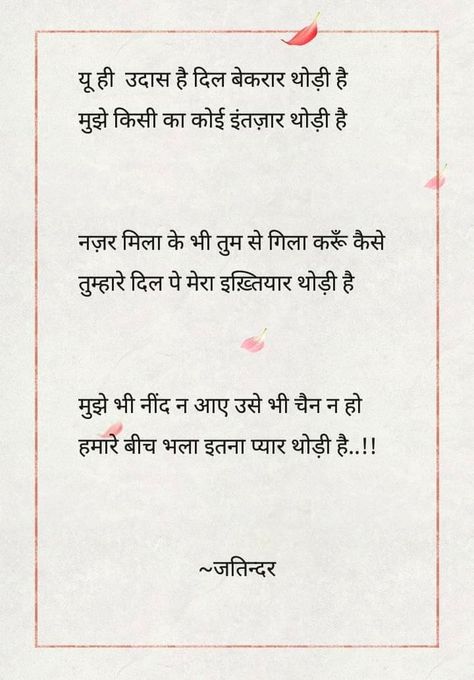 यू ही  उदास है दिल बेकरार थोड़ी है
मुझे किसी का कोई इंतज़ार थोड़ी है
नज़र मिला के भी तुम से गिला करूँ कैसे
तुम्हारे दिल पे मेरा इख़्तियार थोड़ी है
मुझे भी नींद न आए उसे भी चैन न हो
हमारे बीच भला इतना प्यार थोड़ी है..!!
~जतिन्दर